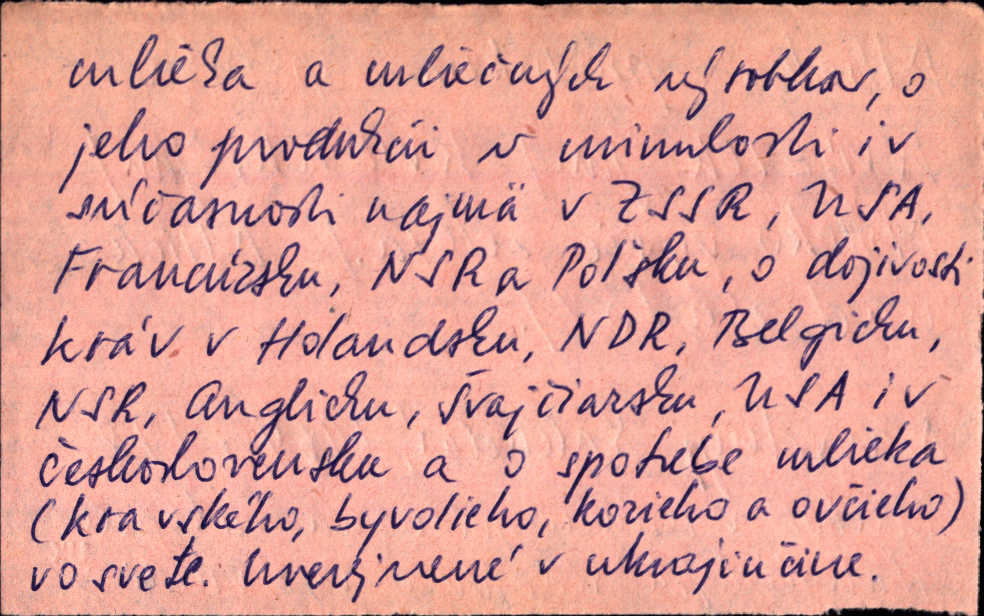 mlieka a mliečnych výrobkov, o
jeho produkcii v minulosti i v
súčasnosti najmä v ZSSR, USA,
Francúzsku, NSR a Poľsku, o dojivosti
kráv v Holandsku, NDR, Belgicku,
NSR, Anglicku, Švajčiarsku, USA i v
Československu a o spotrebe mlieka
(kravského, byvolieho, kozieho a ovčieho)
vo svete. Uverejnené v ukrajinčine.